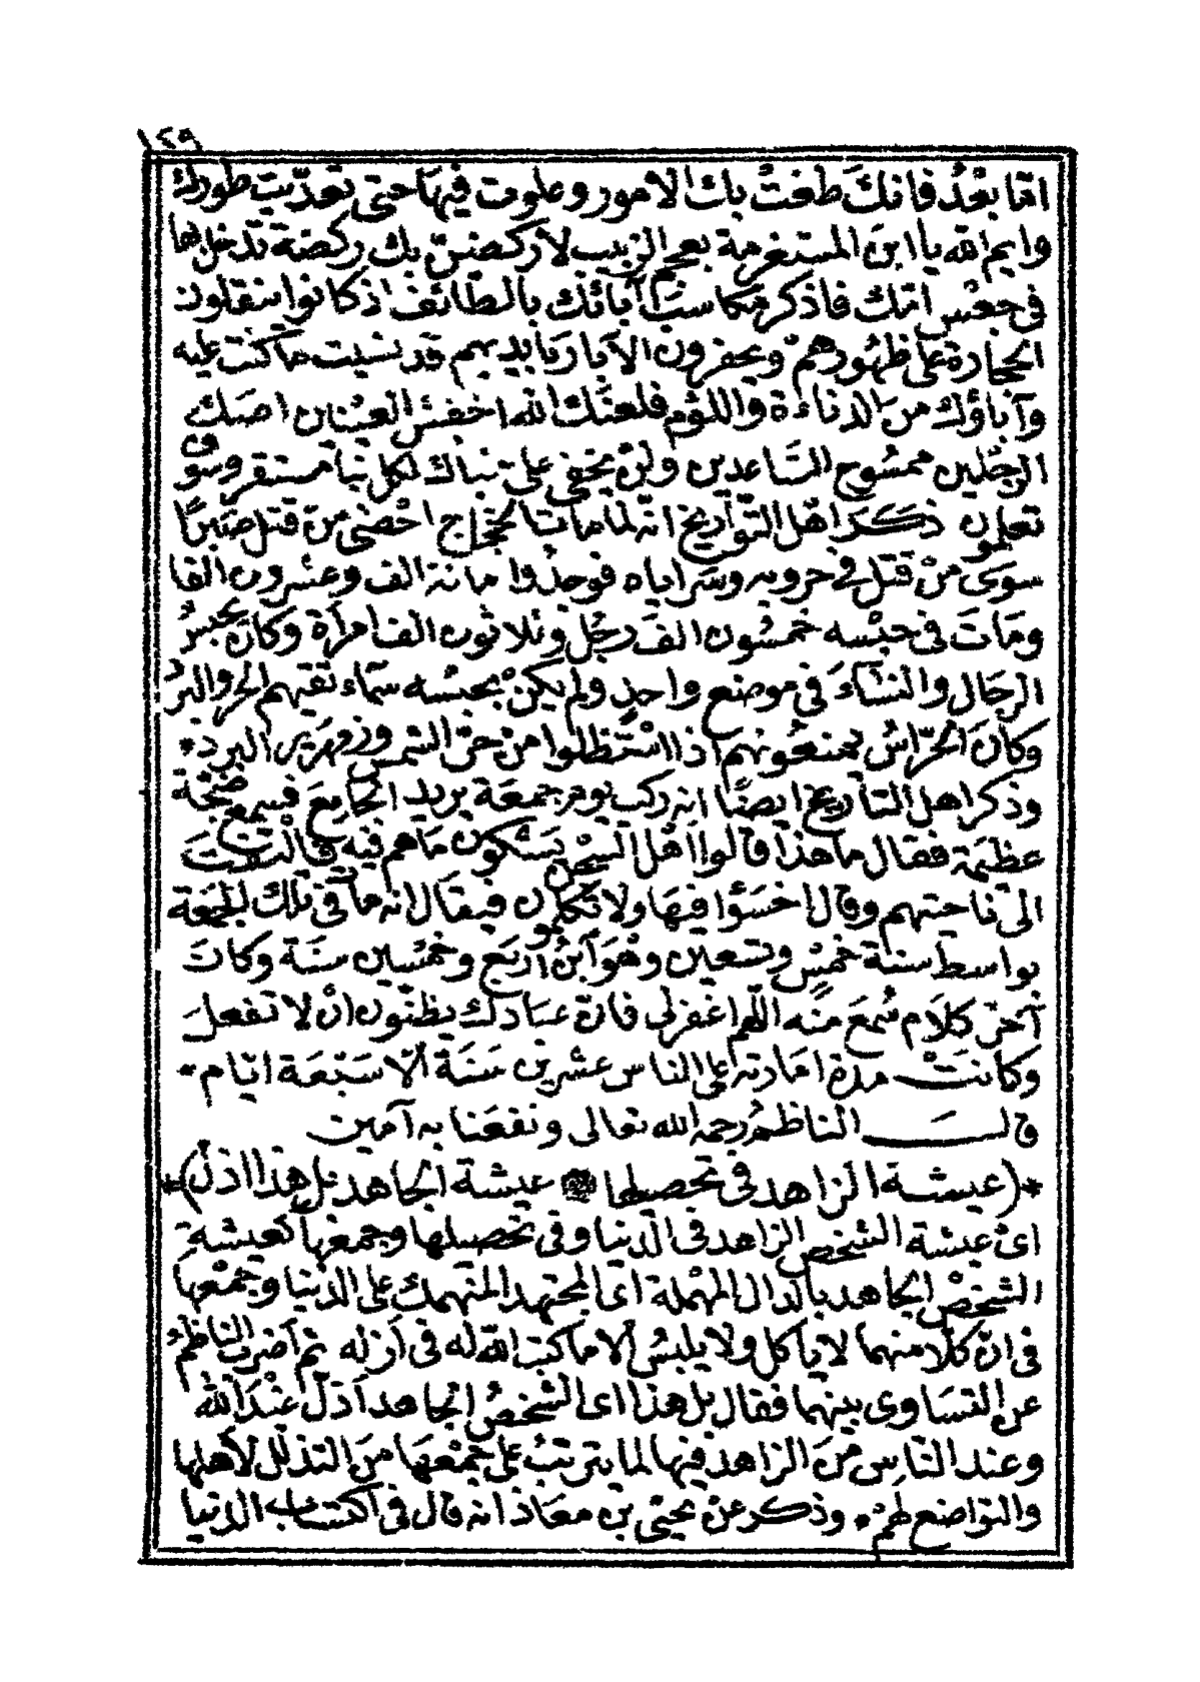 ١٢٩
امّا بعْدُ فانكَ طغتْ بك الأمور وعلوت فيهَا حتى تعدّيت طورك
وايم الله يا ابنَ المستفرمة بعجم الزبيب لأركضنّ بك ركضة تدخل بها
فى جعْس امّك فاذكر مكاسبَ آبائك بالطائف اذ كانوا ينقلون
الحجارة على ظهُورهمْ ويحفرون الآبار بايديهم قد نسيت ما كنت عليه
وآباؤك منَ الدناءة واللؤم فلعنَك الله اخفش العيْنان اصك
الرجْلين ممسُوح السَّاعدين ولنْ يخفى علىّ نباك لكل نبأ مستقر وسوف
تعلمون ذكَرَ اهْل التوَاريخ انه لما مات الحجاج احْصى مَنْ قتل صَبرًا
سوَى منْ قتل فى حروبه وسَراياه فوجدُوا مائة الف وعشرون الفا
ومَاتَ فى حبْسه خمسُون الفَ رجُل وثلاثون الف امرأة وكانَ يحبسُ
الرجَال والنسَاءَ فى موضع واحدٍ ولم يكنْ بحبسْه سمَاء تقيهم الحر والبرْدُ
وكانَ الحرّاسُ يمنعُونهم اذا اسْتظلوا منْ حرّ الشمس وزمهَرير البرد *
وذكر اهل التاريخ ايضًا انه ركب يوم جمعَة يريد الجَامِعَ فسمع ضجّة
عظيمَة فقال ما هذا قالوا اهْل السجْن يَشْكون مَا هم فيه فالْتفتَ
الىَ ناحيتهم وقال اخسَؤا فيهَا ولا تكلمُون فيقَال انه مَاتَ فى تلك الجمعَة
بواسط سنة خمسٍ وتسعين وهُوَ ابْنُ اربَع وخمْسين سنَة وكانَ
آخرَ كلَام سُمعَ منْه اللّهم اغفرْلى فانّ عبَادك يظنّون انْ لا تفعلَ
وكانَتْ مدة امَارته على الناس عشرين سَنَة الّا سَبْعَة ايّام *
قالَ الناظمُ رحمه الله تعالى ونفعَنا به آمين
*(عيشة الزاهد فى تحصيلها * عيشة الجاهد بل هذا اذلّ)*
اىْ عيشة الشخص الزاهد فى الدّنيا وفى تحصيلها وجمعْها كعيشةِ
الشخصْ الجاهد بالدال المهْملة اى المجتهد المنهمك على الدنيا وجمْعها
فى انّ كلّا منهما لا يأكل ولا يلبسُ الّا ما كتبَ الله له فى ازله ثم أضربَ الناظمُ
عن التسَاوى بينهما فقال بل هذا اى الشخصُ الجاهد أذلّ عنْدَ الله
وعند النّاس منَ الزاهد فيْها لما يترتبُ على جمْعهَا منَ التذلل لأهلها
والتواضع لهمْ * وذكر عنْ يحيْى بن معَاذ انه قال فى اكتسَاب الدنيا